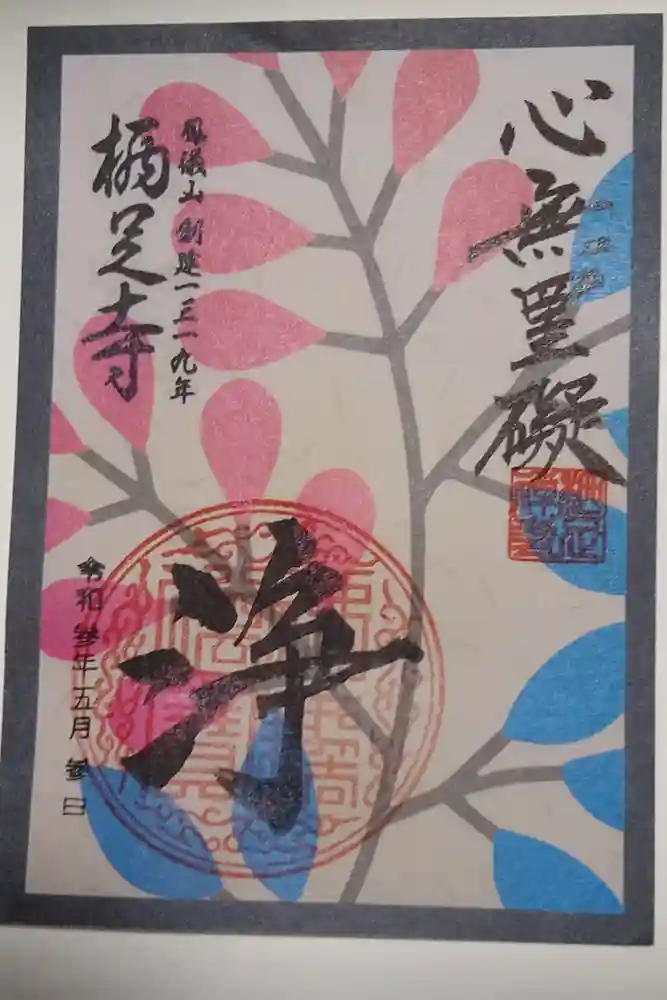 心無罣礙
浄
鳳儀山 創建一三一九年
橘足寺
令和參年五月參日